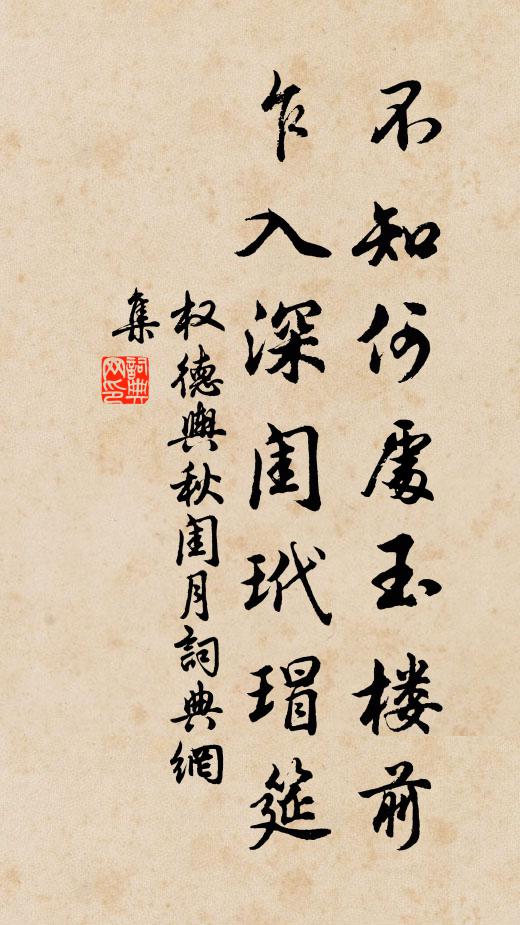 不知何處玉楼前
乍入深闺玳瑁筵
权德輿秋闺月詞典網
集
詞典
网印